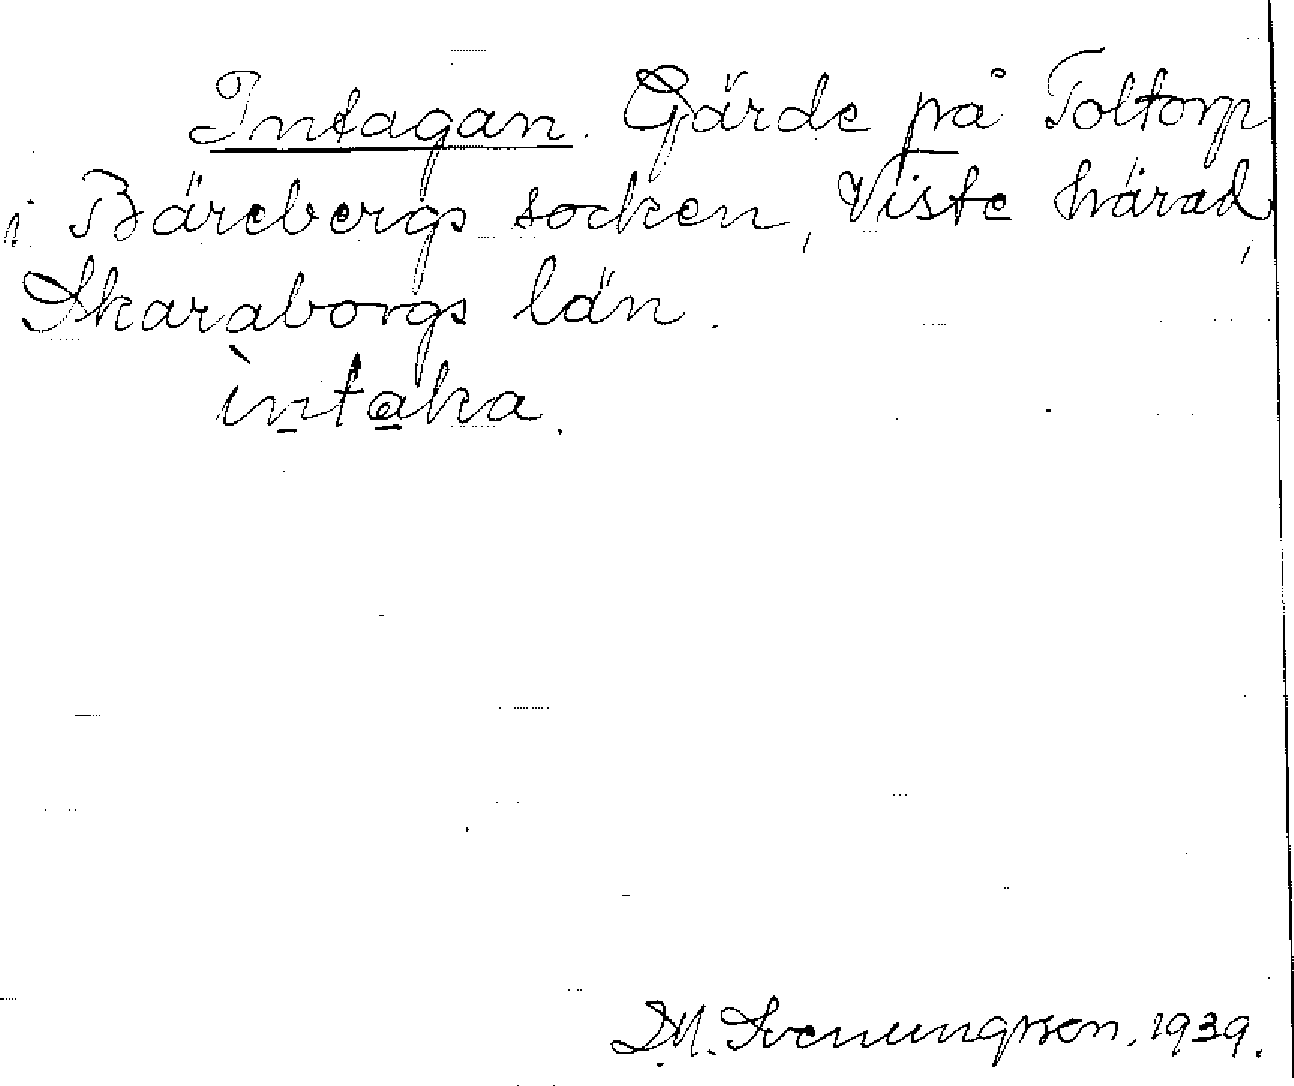 Intagan. Gärde på Toltorp
i Bärebergs socken, Viste härad,
Skaraborgs län.
ìntaka.
D.M. Svenungsson. 1939.